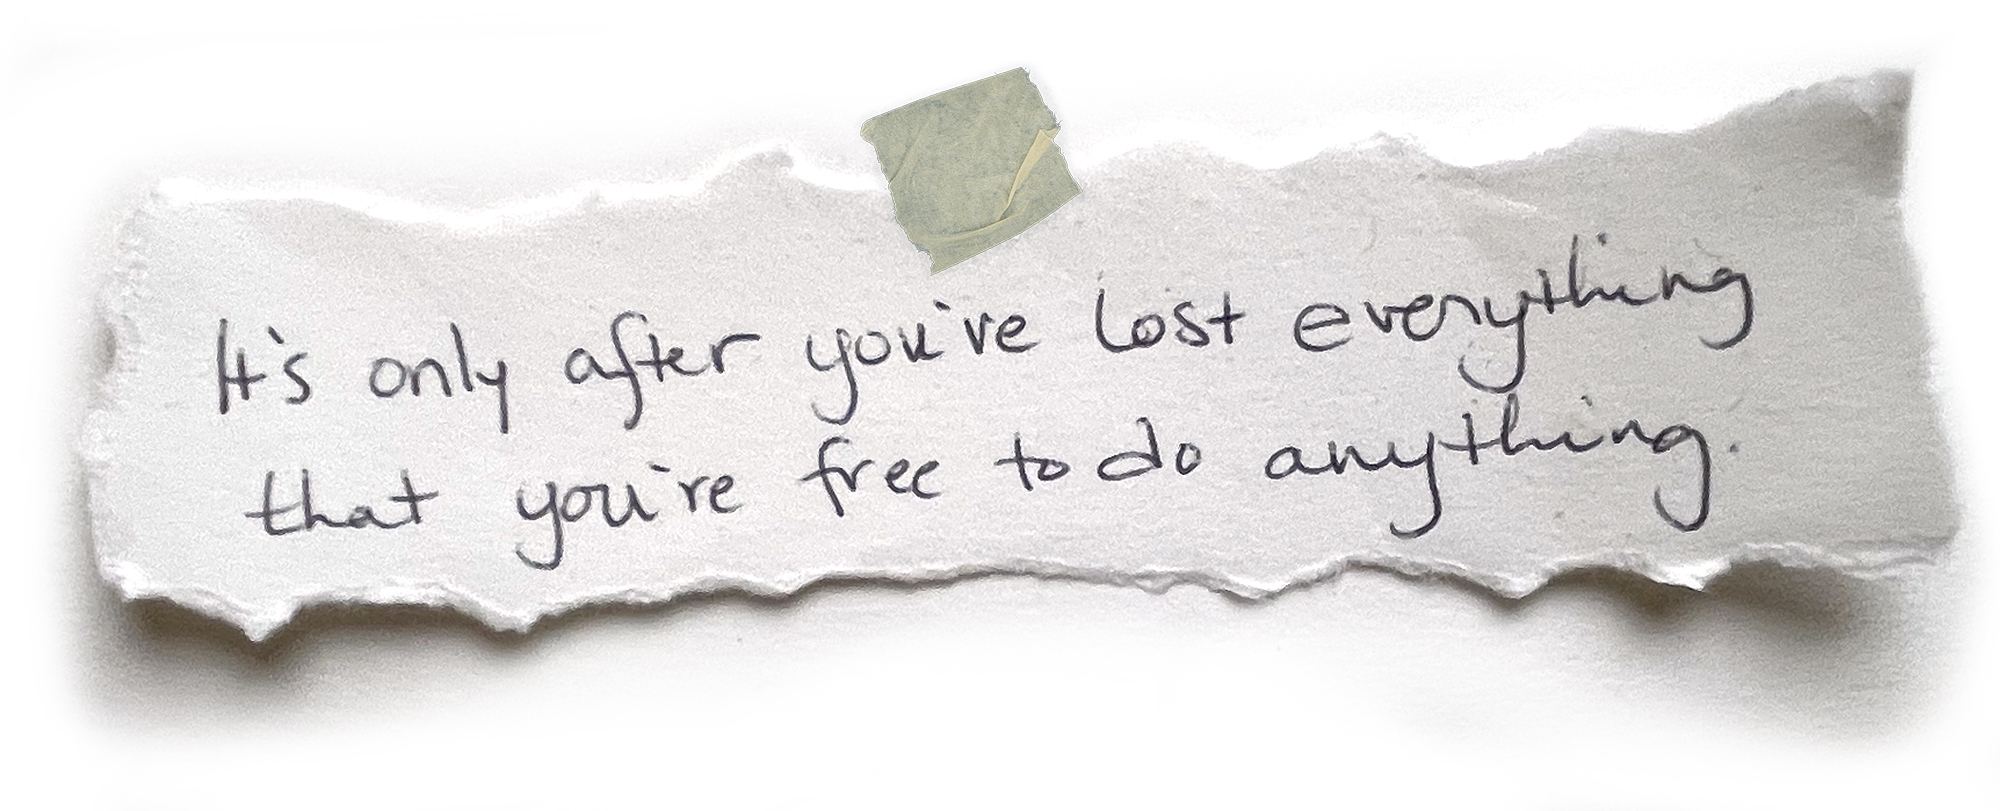 It's only after you've lost everything
that you're free to do anything.